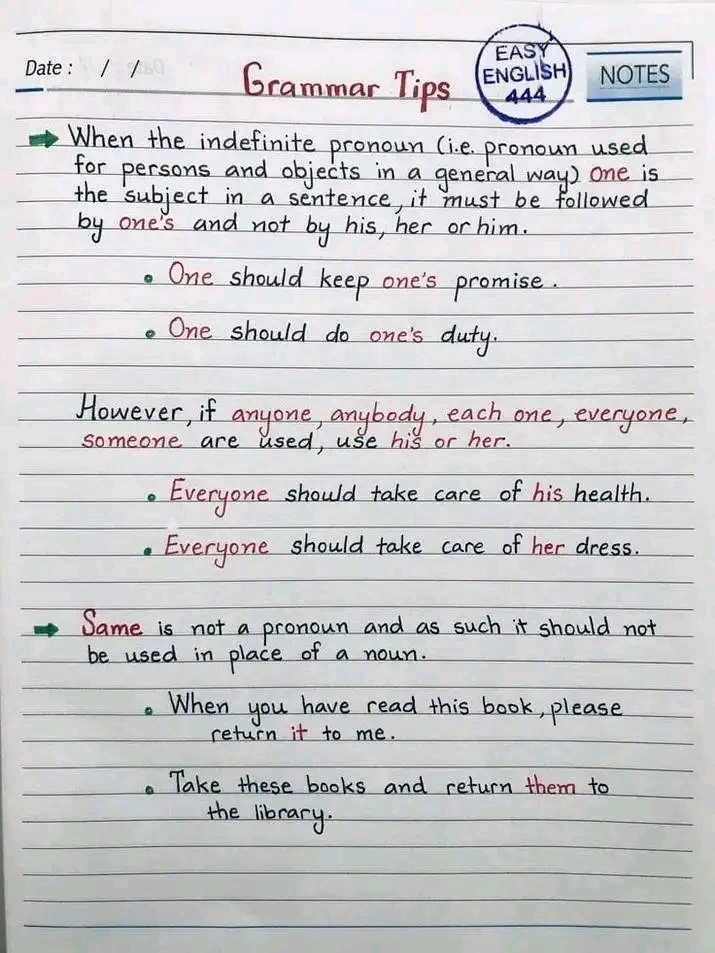 Date : / /
Grammar Tips
EASY
ENGLISH
444
NOTES
When the indefinite pronoun (i.e. pronoun used
for persons and objects in a general way) one is
the subject in a sentence, it must be followed
by one's and not by his, her or him.
• One should keep one's promise.
• One should do one's duty.
However, if anyone, anybody, each one, everyone,
someone are used, use his or her.
• Everyone should take care of his health.
• Everyone should take care of her dress.
Same is not a pronoun and as such it should not
be used in place of a noun.
• When you have read this book, please
return it to me.
• Take these books and return them to
the library.